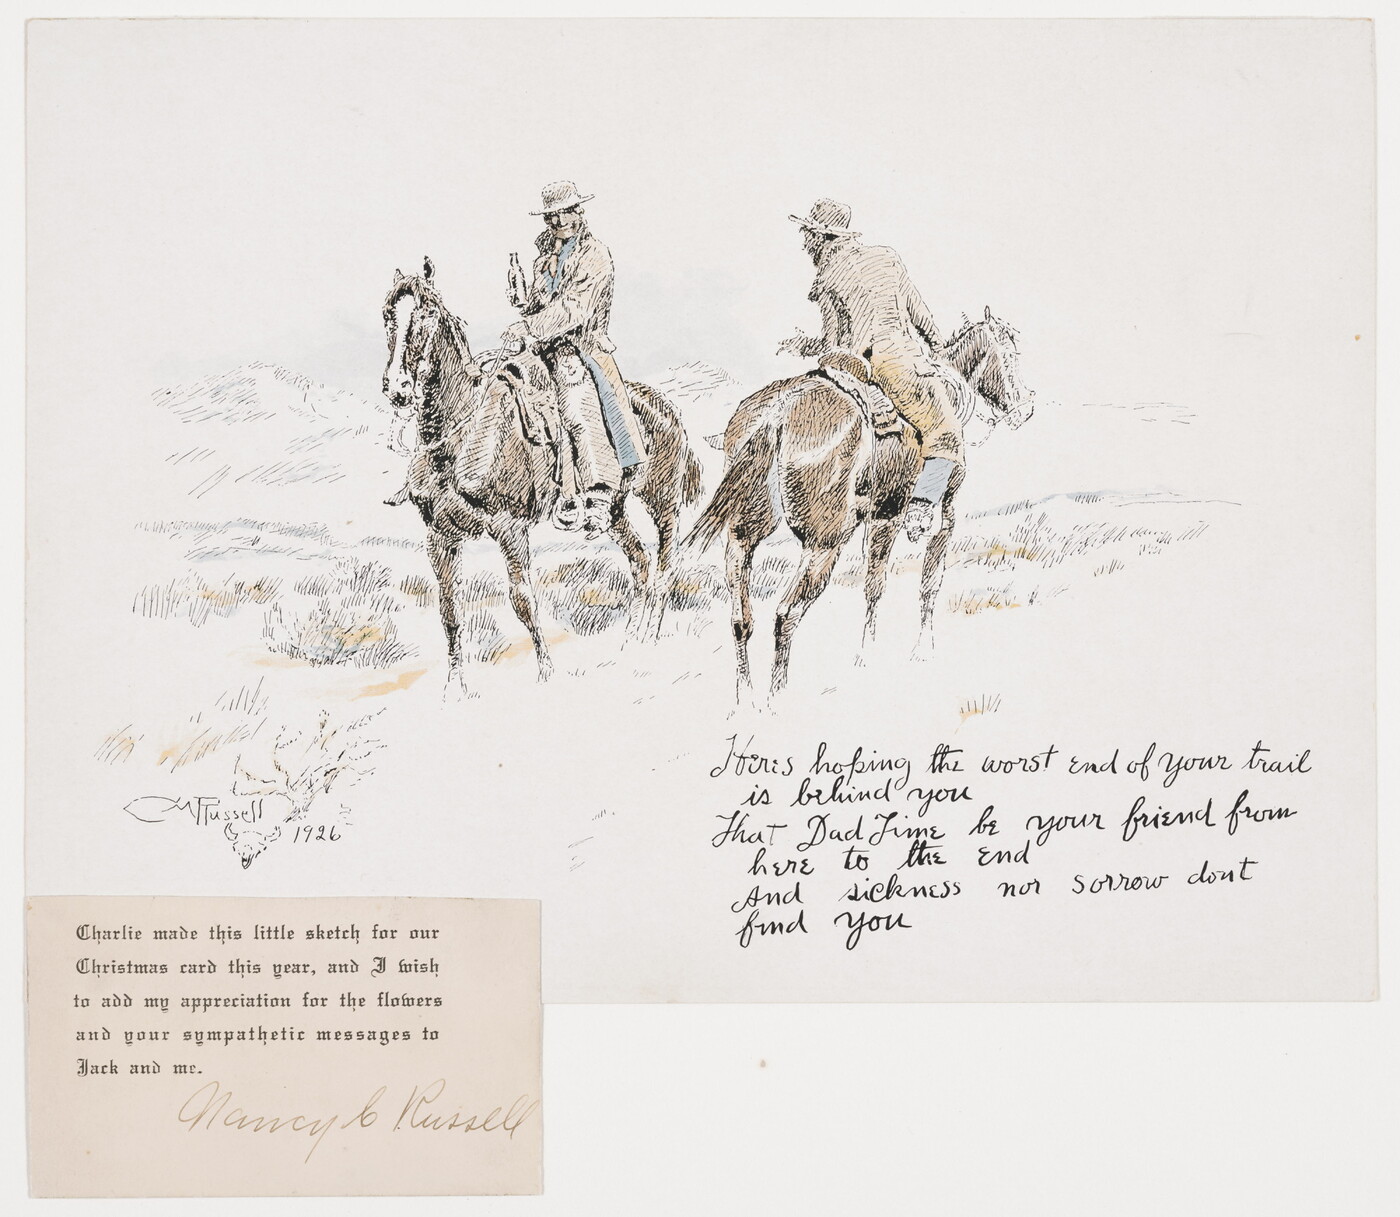 Heres hoping the worst end of your trail
is behind you
That Dad Time be your friend from
here to the end
And sickness nor sorrow dont
find you
CM Russell
1926
Charlie made this little sketch for our
Christmas card this year, and I wish
to add my appreciation for the flowers
and your sympathetic messages to
Jack and me.
Nancy C Russell